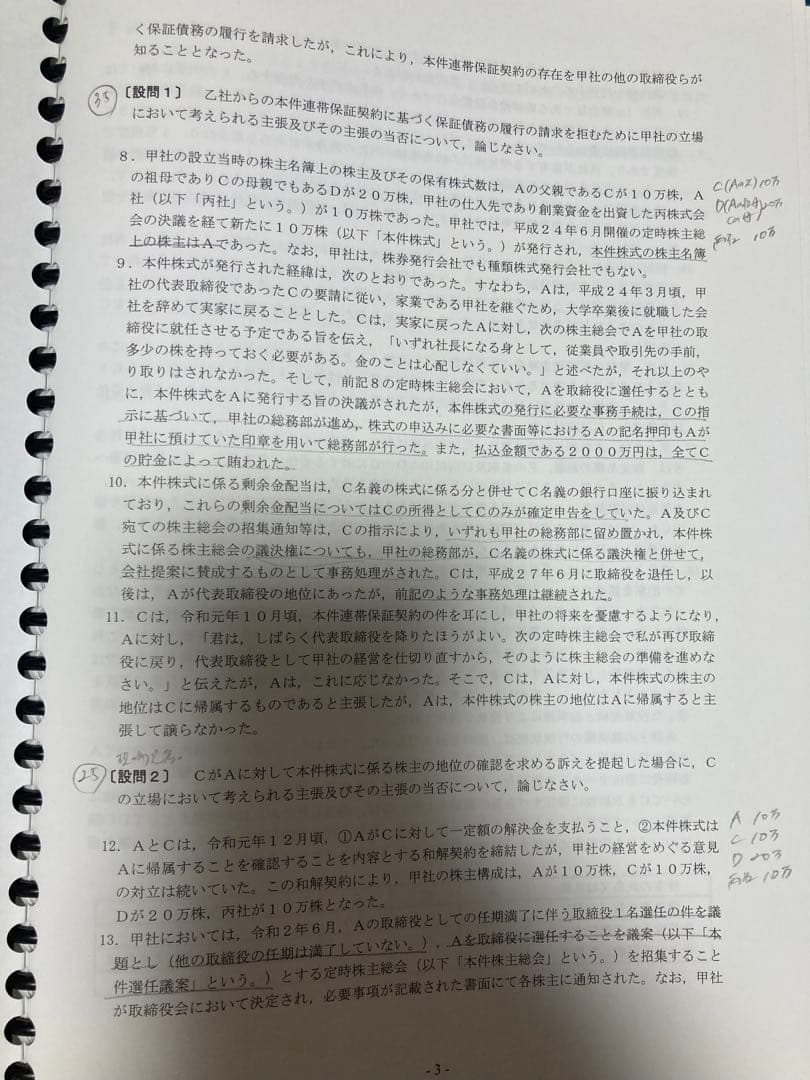 く保証債務の履行を請求したが，これにより，本件連帯保証契約の存在を甲社の他の取締役らが
知ることとなった。
35
〔設問１〕　乙社からの本件連帯保証契約に基づく保証債務の履行の請求を拒むために甲社の立場
において考えられる主張及びその主張の当否について，論じなさい。
８．甲社の設立当時の株主名簿上の株主及びその保有株式数は，Ａの父親であるＣが１０万株，Ａ
の祖母でありＣの母親でもあるＤが２０万株，甲社の仕入先であり創業資金を出資した丙株式会
社（以下「丙社」という。）が１０万株であった。甲社では，平成２４年６月開催の定時株主総
会の決議を経て新たに１０万株（以下「本件株式」という。）が発行され，本件株式の株主名簿
上の株主はＡであった。なお，甲社は，株券発行会社でも種類株式発行会社でもない。
C(Aの父)10万
D(Aの祖母)20万
Cの母
丙社 10万
９．本件株式が発行された経緯は，次のとおりであった。すなわち，Ａは，平成２４年３月頃，甲
社の代表取締役であったＣの要請に従い，家業である甲社を継ぐため，大学卒業後に就職した会
社を辞めて実家に戻ることとした。Ｃは，実家に戻ったＡに対し，次の株主総会でＡを甲社の取
締役に就任させる予定である旨を伝え，「いずれ社長になる身として，従業員や取引先の手前，
多少の株を持っておく必要がある。金のことは心配しなくていい。」と述べたが，それ以上のや
り取りはされなかった。そして，前記８の定時株主総会において，Ａを取締役に選任するととも
に，本件株式をＡに発行する旨の決議がされたが，本件株式の発行に必要な事務手続は，Ｃの指
示に基づいて，甲社の総務部が進め，株式の申込みに必要な書面等におけるＡの記名押印もＡが
甲社に預けていた印章を用いて総務部が行った。また，払込金額である２０００万円は，全てＣ
の貯金によって賄われた。
10．本件株式に係る剰余金配当は，Ｃ名義の株式に係る分と併せてＣ名義の銀行口座に振り込まれ
ており，これらの剰余金配当についてはＣの所得としてＣのみが確定申告をしていた。Ａ及びＣ
宛ての株主総会の招集通知等は，Ｃの指示により，いずれも甲社の総務部に留め置かれ，本件株
式に係る株主総会の議決権についても，甲社の総務部が，Ｃ名義の株式に係る議決権と併せて，
会社提案に賛成するものとして事務処理がされた。Ｃは，平成２７年６月に取締役を退任し，以
後は，Ａが代表取締役の地位にあったが，前記のような事務処理は継続された。
11．Ｃは，令和元年１０月頃，本件連帯保証契約の件を耳にし，甲社の将来を憂慮するようになり，
Ａに対し，「君は，しばらく代表取締役を降りたほうがよい。次の定時株主総会で私が再び取締
役に戻り，代表取締役として甲社の経営を仕切り直すから，そのように株主総会の準備を進めな
さい。」と伝えたが，Ａは，これに応じなかった。そこで，Ｃは，Ａに対し，本件株式の株主の
地位はＣに帰属するものであると主張したが，Ａは，本件株式の株主の地位はＡに帰属すると主
張して譲らなかった。
25
〔設問２〕　ＣがＡに対して本件株式に係る株主の地位の確認を求める訴えを提起した場合に，Ｃ
の立場において考えられる主張及びその主張の当否について，論じなさい。
12．ＡとＣは，令和元年１２月頃，①ＡがＣに対して一定額の解決金を支払うこと，②本件株式は
Ａに帰属することを確認することを内容とする和解契約を締結したが，甲社の経営をめぐる意見
の対立は続いていた。この和解契約により，甲社の株主構成は，Ａが１０万株，Ｃが１０万株，
Ｄが２０万株，丙社が１０万株となった。
A 10万
C 10万
D 20万
丙社 10万
13．甲社においては，令和２年６月，Ａの取締役としての任期満了に伴う取締役１名選任の件を議
題とし（他の取締役の任期は満了していない。），Ａを取締役に選任することを議案（以下「本
件選任議案」という。）とする定時株主総会（以下「本件株主総会」という。）を招集すること
が取締役会において決定され，必要事項が記載された書面にて各株主に通知された。なお，甲社
- 3 -